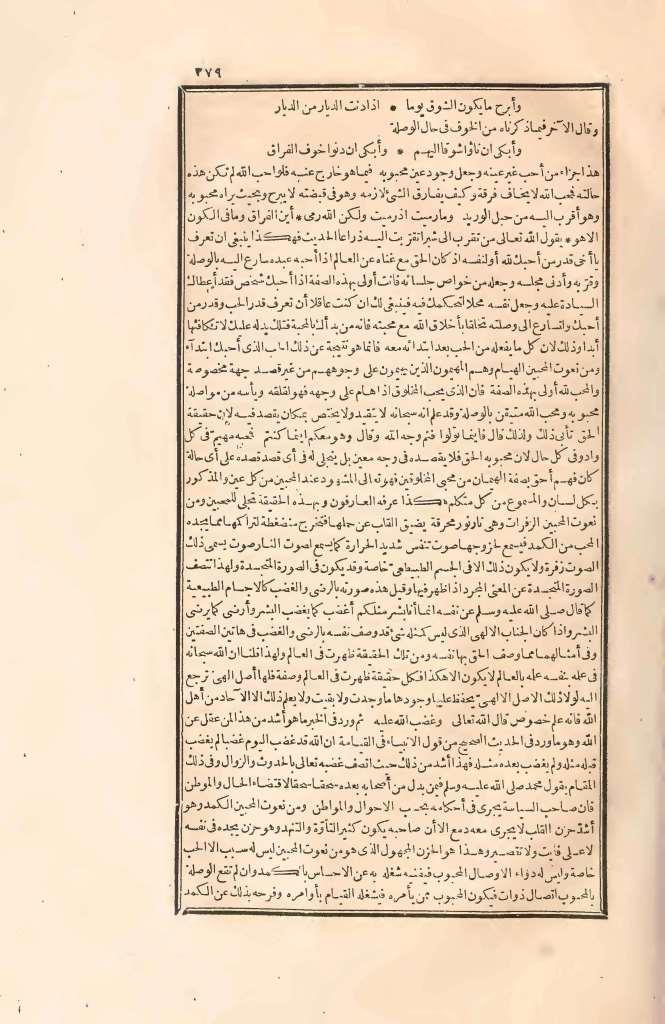 ٣٧٩
وأبرح ما يكون الشوق يوما * اذا دنت الديار من الديار
وقال الآخر فيما ذكرناه من الخوف في حال الوصلة
وأبكي ان نأوا شوقا اليهم * وأبكي ان دنوا خوف الفراق
هذا جزاء من أحب غير عينه وجعل وجود عين محبوبه فيما هو خارج عنه فلو أحب الله لم تكن هذه
حالته فمحب الله لا يخاف فرقة وكيف يفارق الشئ لازمه وهو في قبضته لا يبرح وبحيث يراه محبوبه
وهو أقرب اليه من حبل الوريد وما رميت اذ رميت ولكن الله رمى * أين الفراق وما في الكون
الا هو * يقول الله تعالى من تقرب الى شبرا تقربت اليه ذراعا الحديث فهكذا ينبغي ان تعرف
يا أخي قدر من أحبك لله أو لنفسه اذ كان الحق مع غناه عن العالم اذا أحبه عبده سارع اليه بالوصلة
وقربه وأدنى مجلسه وجعله من خواص جلسائه فأنت أولى بهذه الصفة اذا أحبك شخص فقد أعطاك
السيادة عليه وجعل نفسه محلا لتحكمك فيه فينبغي لك ان كنت عاقلا أن تعرف قدر الحب وقدر من
أحبك ولتسارع الى وصلته تخلقا بأخلاق الله مع محبته فانه من بدأك بالمحبة فتلك يد له عليك لا تكافئها
أبدا وذلك لان كل ما يفعله من الحب بعد ابتدائه معه فانما هو نتيجة عن ذلك الحب الذي أحبك ابتداء
ومن نعوت المحبين الهيام وهم المهيمون الذين يهيمون على وجوههم من غير قصد جهة مخصوصة
والمحب لله أولى بهذه الصفة فان الذي يحب المخلوق اذا هام على وجهه فهو لقلقه ويأسه من مواصلة
محبوبه ومحب الله متيقن بالوصلة وقد علم انه سبحانه لا يتقيد ولا يختص بمكان يقصد فيه لان حقيقة
الحق تأبى ذلك ولذلك قال فأينما تولوا فثم وجه الله وقال وهو معكم أينما كنتم فمحبه مهيم في كل
واد وفي كل حال لان محبوبه الحق فلا يقصده في وجه معين بل يتجلى له في أي قصد قصده على أي حالة
كان فهم أحق بصفة الهيمان من محبي المخلوقين فهو ته الى المشهود عند المحبين من كل عين والمذكور
بكل لسان والمسموع من كل متكلم هكذا عرفه العارفون وبهذه الحقيقة تجلى للمحبين ومن
نعوت المحبين الزفرات وهي نار نور محرقة يضيق القلب عن حملها فتخرج منضغطة لتراكمها مما يجده
المحب من الكمد فيسمع لخروجها صوت تنفس شديد الحرارة كما يسمع لصوت النار صوت يسمى ذلك
الصوت زفرة ولا يكون ذلك الا في الجسم الطبيعي خاصة وقد يكون في الصورة المتجسدة ولهذا تتصف
الصورة المتجسدة عن المعنى المجرد اذا ظهر فيها وقبل هذه صورته بالرضى والغضب كالاجسام الطبيعية
كما قال صلى الله عليه وسلم عن نفسه انما أنا بشر مثلكم أغضب كما يغضب البشر وأرضى كما يرضى
البشر واذا كان الجناب الالهي الذي ليس كمثله شئ قد وصف نفسه بالرضى والغضب في هاتين الصفتين
وفي أمثالهما مما وصف الحق بها نفسه ومن تلك الحقيقة ظهرت في العالم ولهذا قلنا ان الله سبحانه
في علمه بنفسه علمه بالعالم لا يكون الا هكذا فكل حقيقة ظهرت في العالم وصفة فلها أصل الهي ترجع
اليه لولا ذلك الاصل الالهي يحفظ عليها وجودها ما وجدت ولا بقيت ولا يعلم ذلك الا الآحاد من أهل
الله فانه علم خصوص قال الله تعالى وغضب الله عليه ثم ورد في الخبر ما هو أشد من هذا لمن عقل عن
الله وهو ما ورد في الحديث الصحيح من قول الانبياء في القيامة ان الله قد غضب اليوم غضبا لم يغضب
قبله مثله ولم يغضب بعده مثله فهذا أشد من ذلك حيث اتصف غضبه تعالى بالحدوث والزوال وفي ذلك
المقام يقول محمد صلى الله عليه وسلم فيمن بدل من أصحابه بعده سحقا سحقا لاقتضاء الحال والموطن
فان صاحب السياسة يجرى في أحكامه بحسب الاحوال والمواطن ومن نعوت المحبين الكمد وهو
أشد حزن القلب لا يجرى معه دمع الا أن صاحبه يكون كثير التأوه والتنهد وهو حزن يجده في نفسه
لا على فائت ولا تقصير وهذا هو الحزن المجهول الذي هو من نعوت المحبين ليس له سبب الا الحب
خاصة وليس له دواء الا وصال المحبوب فيفنيه شغله به عن الاحساس بالكمد وان لم تقع الوصلة
بالمحبوب اتصال ذوات فيكون المحبوب ممن يأمره فيشغله القيام بأوامره وفرحه بذلك عن الكمد